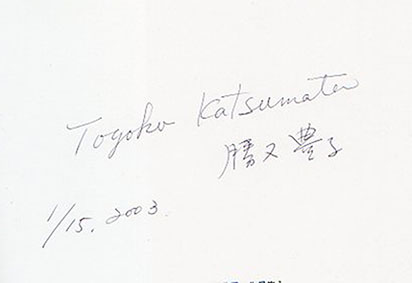 Toyoko Katsumata
勝又豊子
1/15, 2003.